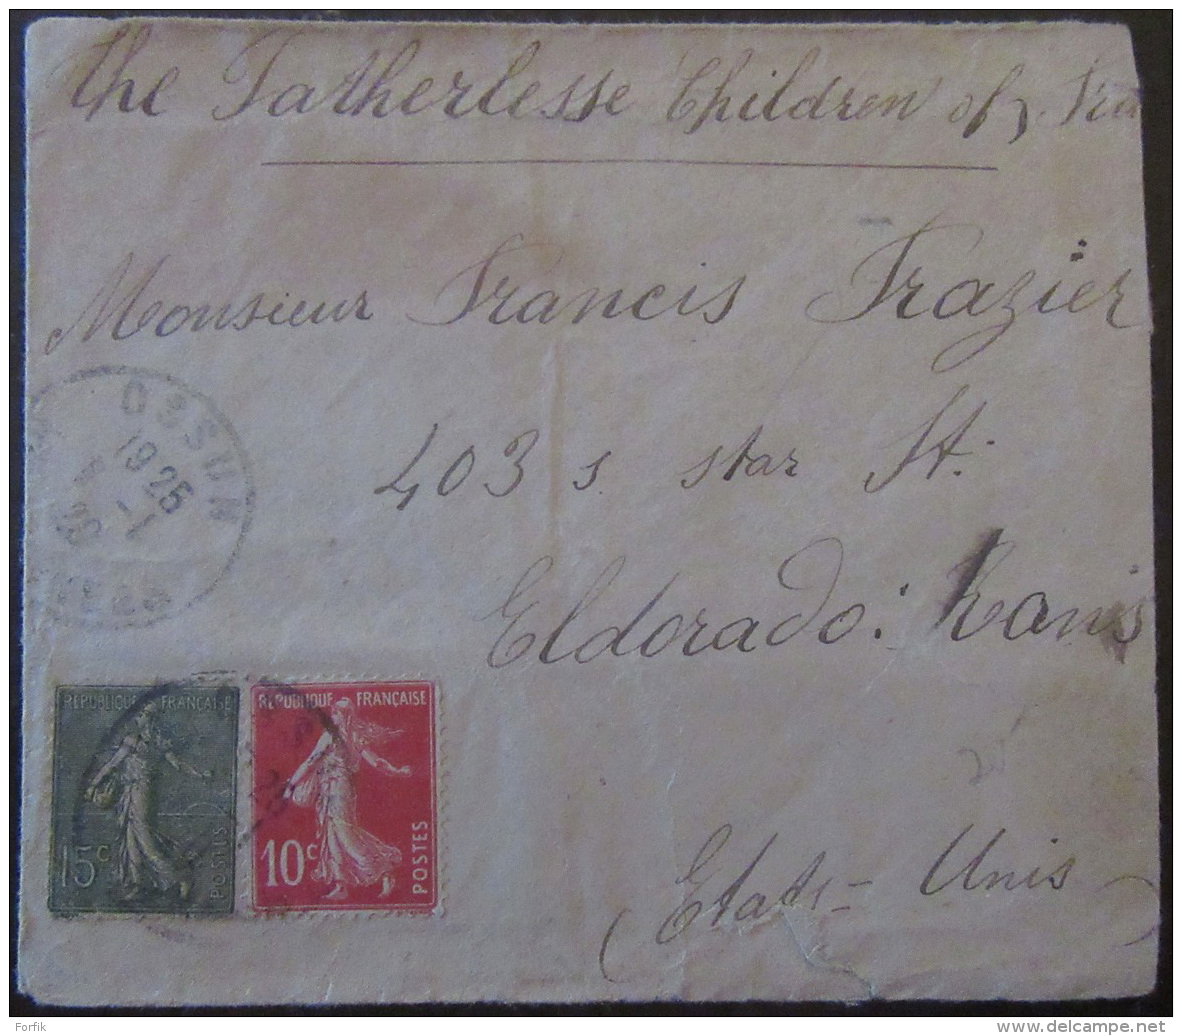 the Fatherlesse Children of
Monsieur Francis Frazier
403 s star St.
Eldorado: Kans
(Etats-Unis)
OSSUN
1925
REPUBLIQUE FRANÇAISE
15c
POSTES
REPUBLIQUE FRANÇAISE
10c
POSTES
Forfik
delcampe.net